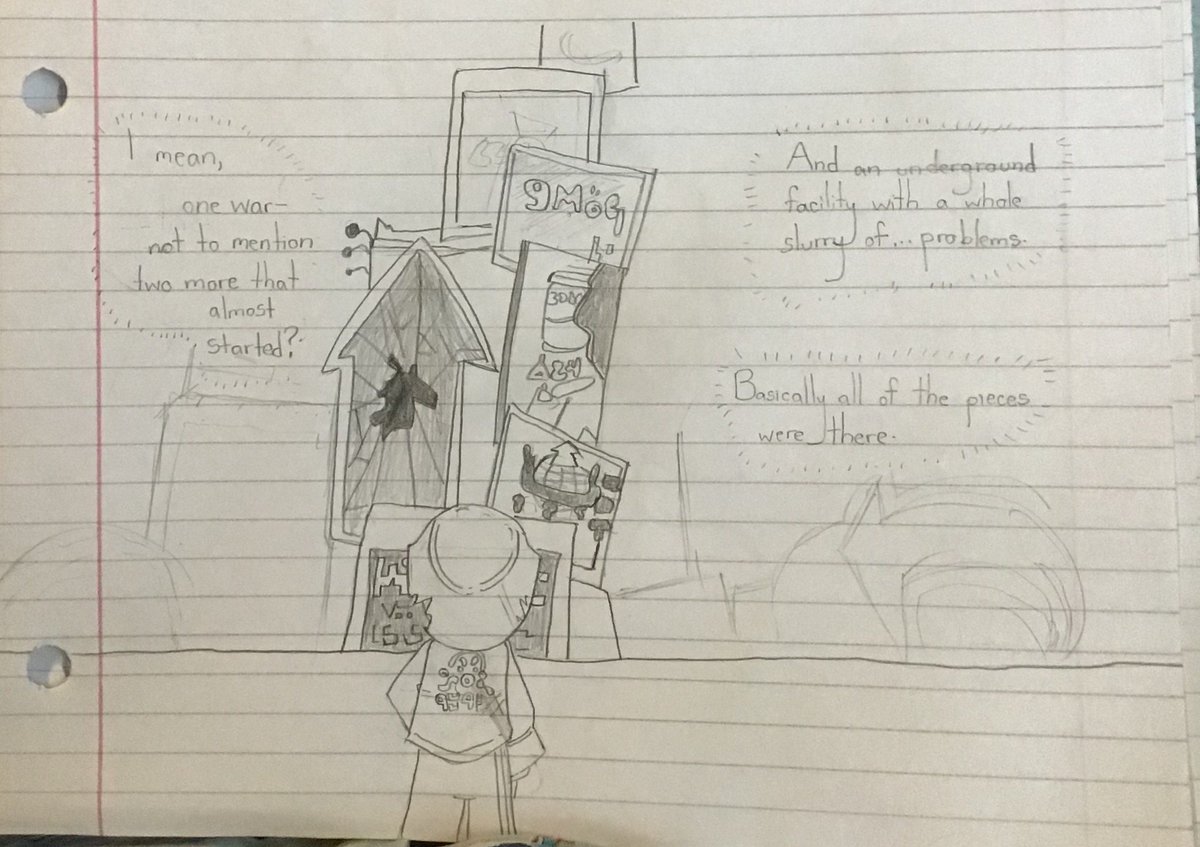 I mean,
one war-
not to mention
two more that
almost
started?
And an underground
facility with a whole
slurry of... problems.
Basically all of the pieces
were there.